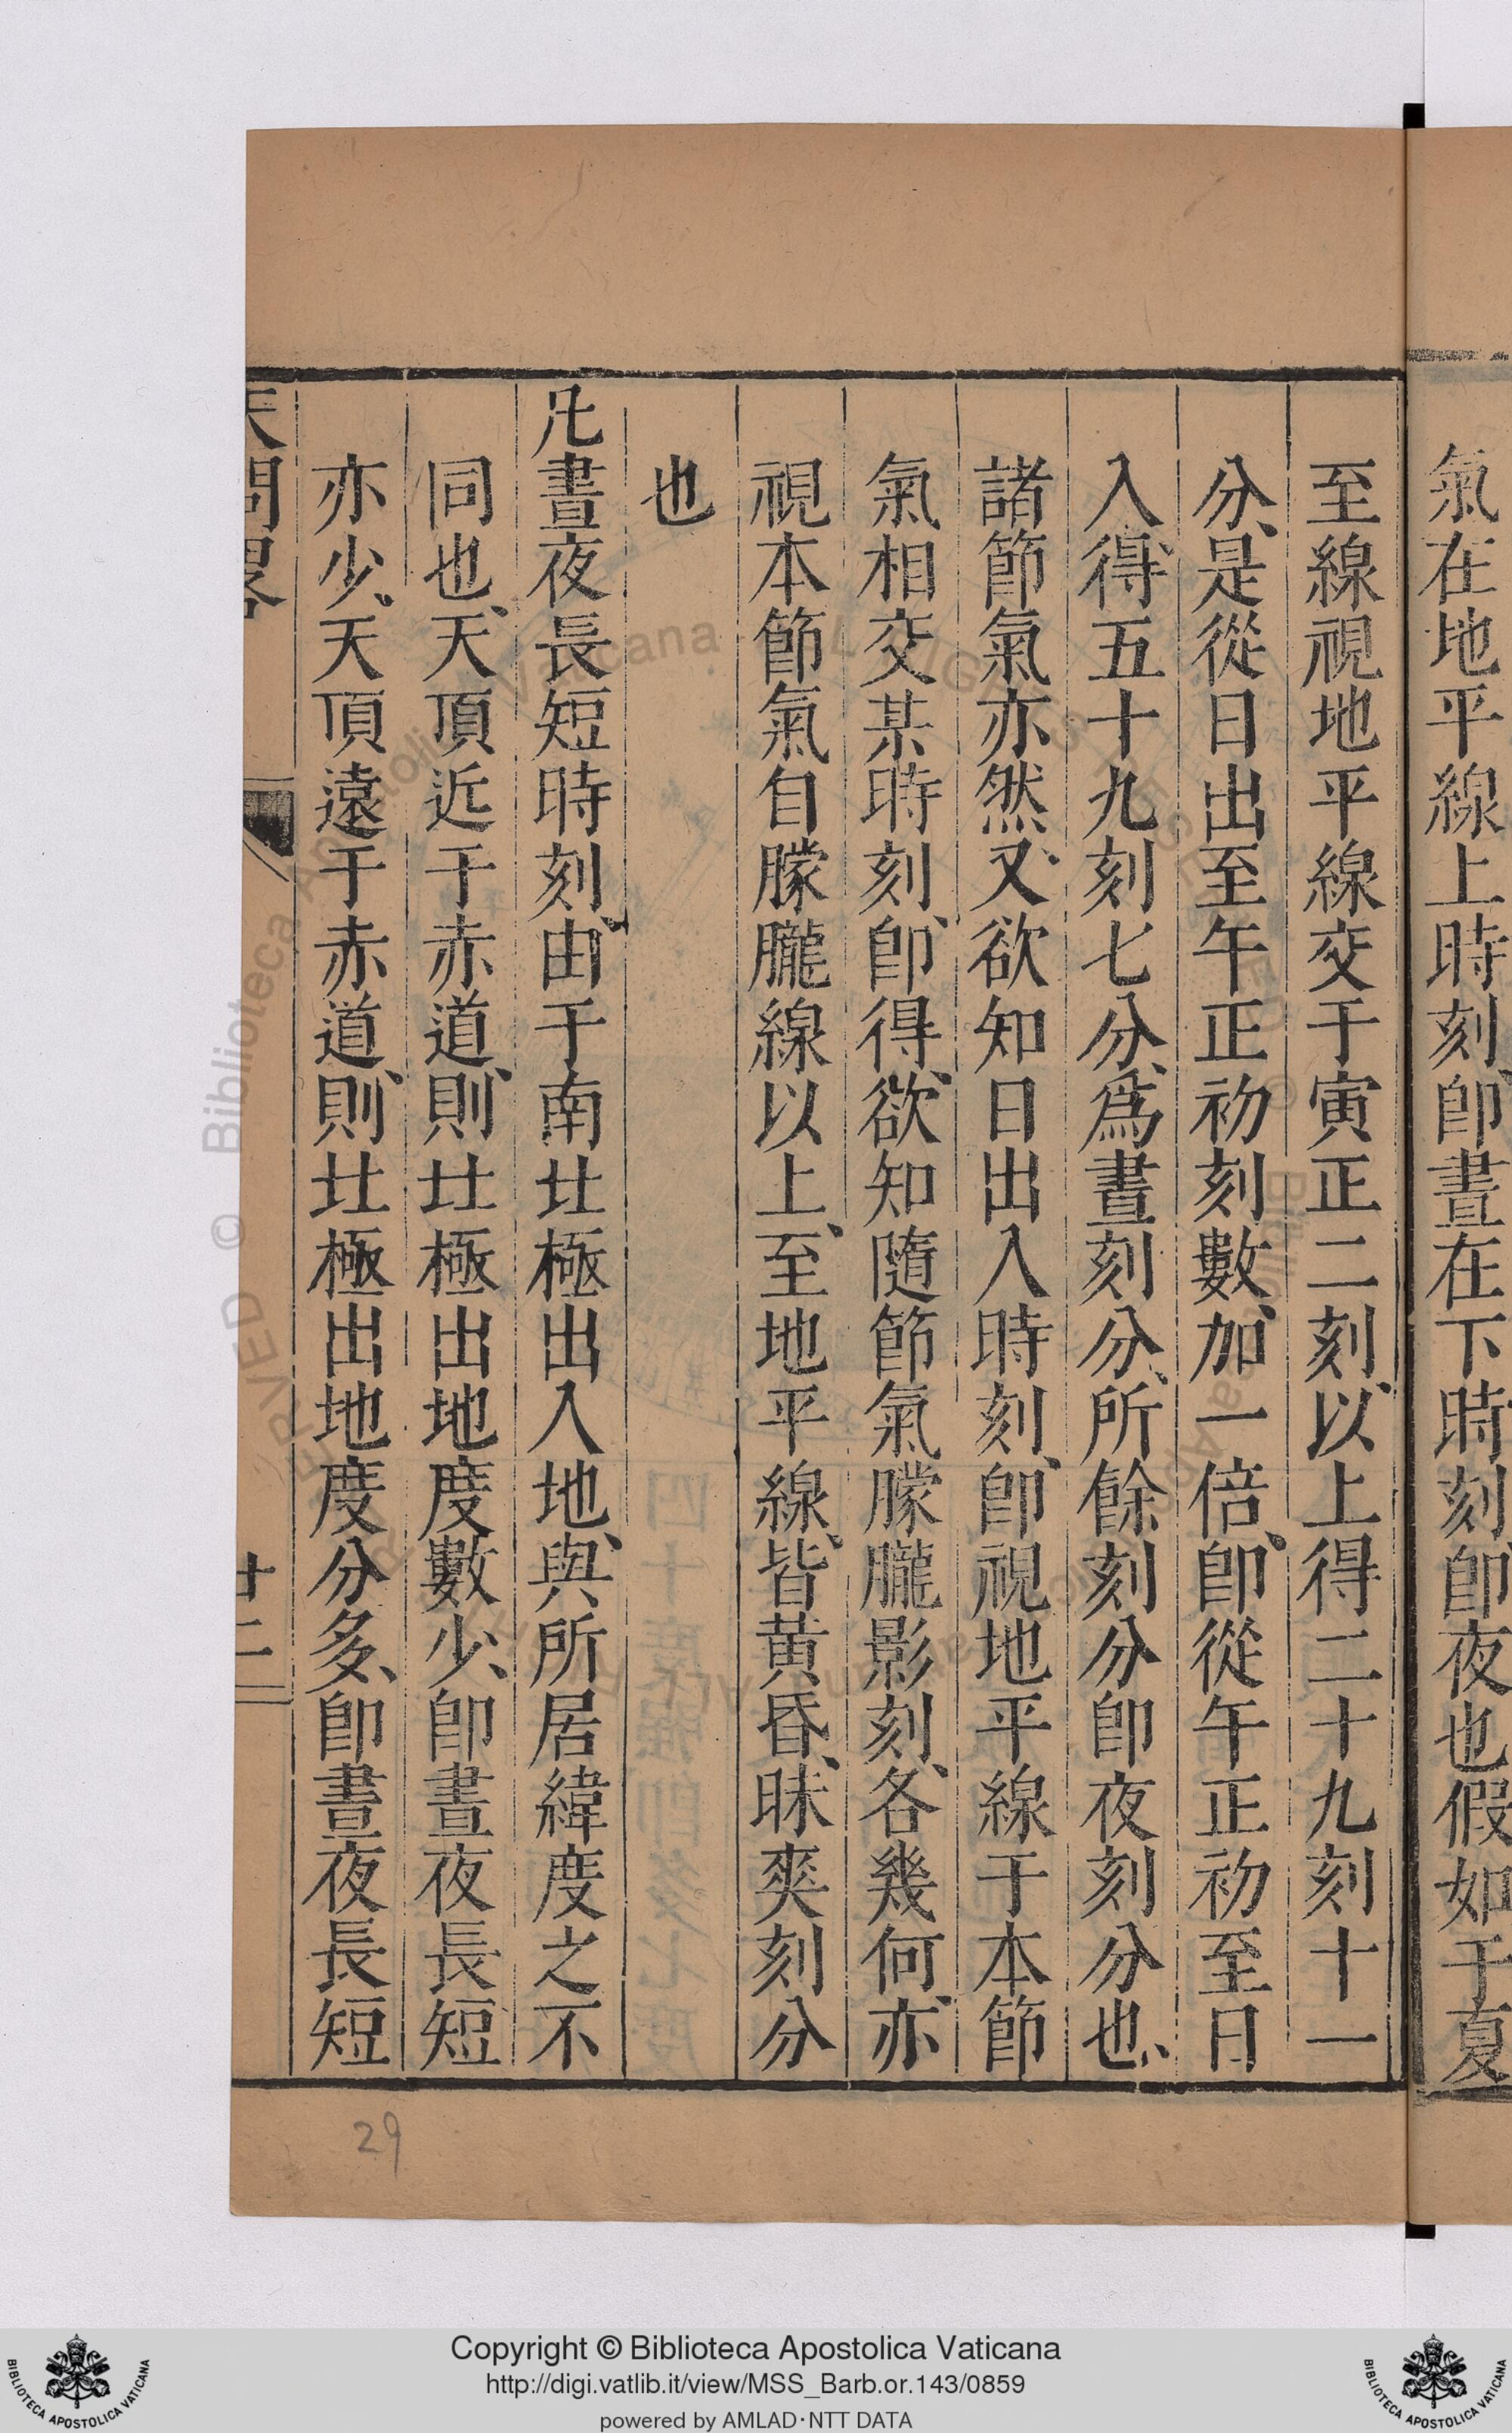 氣在地平線上時刻、卽晝在下時刻卽夜也假如于夏
至線視地平線交于寅正二刻、以上得二十九刻十一
分、是從日出至午正初刻數、加一倍、卽從午正初至日
入、得五十九刻七分、爲晝刻分、所餘刻分卽夜刻分也、
諸節氣亦然、又欲知日出入時刻、卽視地平線于本節
氣相交某時刻、卽得、欲知隨節氣朦朧影刻、各幾何、亦
視本節氣自朦朧線以上、至地平線、皆黄昏、昧爽刻分
也
凡晝夜長短時刻、由于南北極出入地、與所居緯度之不
同也、天頂近于赤道、則北極出地度數少、卽晝夜長短
亦少、天頂遠于赤道、則北極出地度分多、卽晝夜長短
天問畧
廿二
29
© Biblioteca Apostolica Vaticana
Copyright © Biblioteca Apostolica Vaticana
http://digi.vatlib.it/view/MSS_Barb.or.143/0859
powered by AMLAD·NTT DATA
BIBLIOTECA APOSTOLICA VATICANA
BIBLIOTECA APOSTOLICA VATICANA